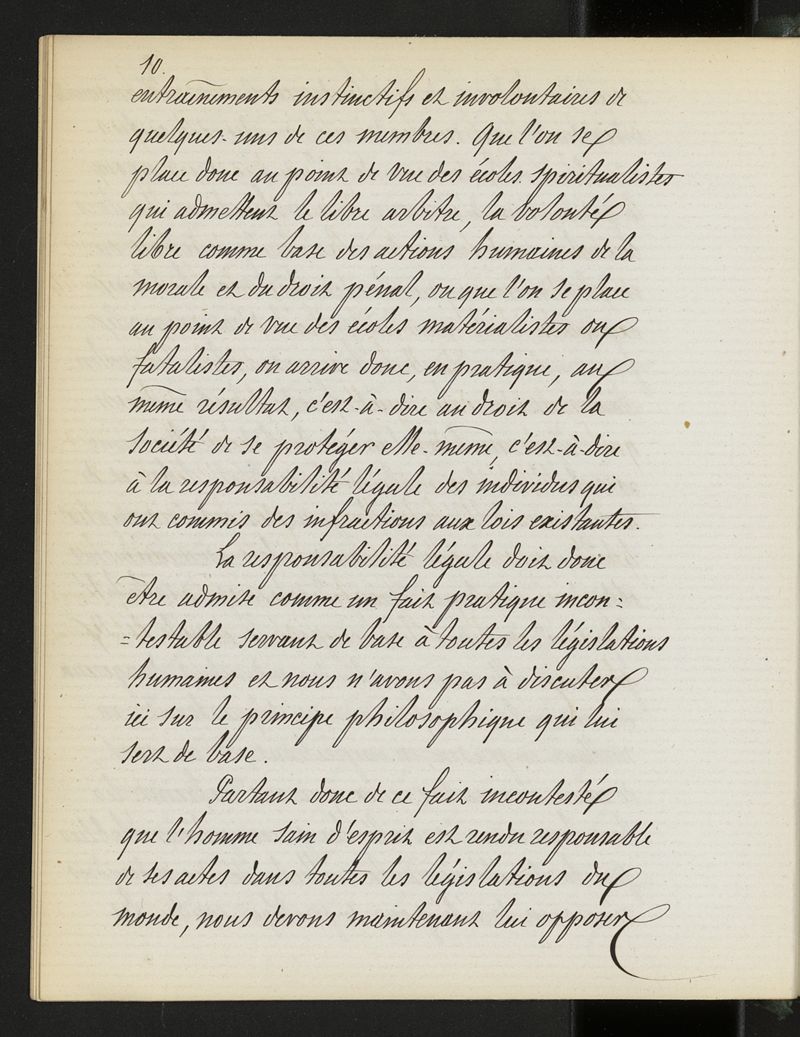 10.
entraînements instinctifs et involontaires de
quelques-uns de ces membres. Que l'on se
place donc au point de vue des écoles spiritualistes
qui admettent le libre arbitre, la volonté
libre comme base des actions humaines de la
morale et du droit pénal, ou que l'on se place
au point de vue des écoles matérialistes ou
fatalistes, on arrive donc, en pratique, au
même résultat, c'est-à-dire au droit de la
société de se protéger elle-même, c'est-à-dire
à la responsabilité légale des individus qui
ont commis des infractions aux lois existantes.
La responsabilité légale doit donc
être admise comme un fait pratique incon=
=testable servant de base à toutes les législations
humaines et nous n'avons pas à discuter
ici sur le principe philosophique qui lui
sert de base.
Partant donc de ce fait incontesté
que l'homme sain d'esprit est rendu responsable
de ses actes dans toutes les législations du
monde, nous devons maintenant lui opposer